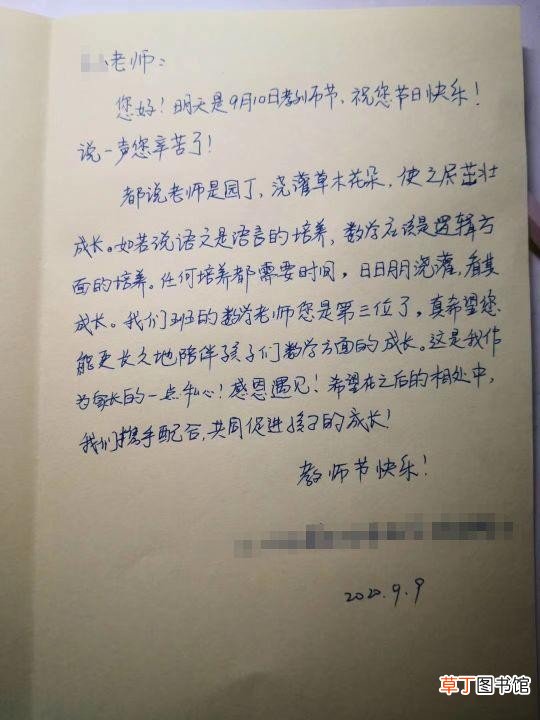 老师：
您好！明天是9月10日教师节，祝您节日快乐！
说一声您辛苦了！
都说老师是园丁，浇灌草木花朵，使之茁壮
成长。如若说语文是语言的培养，数学应该是逻辑方
面的培养。任何培养都需要时间，日日月月浇灌，看其
成长。我们班的数学老师您是第三位了，真希望您
能更长久地陪伴孩子们数学方面的成长。这是我作
为家长的一点私心！感恩遇见！希望在之后的相处中，
我们携手配合，共同促进孩子的成长！
教师节快乐！
2020.9.9
草丁图书馆